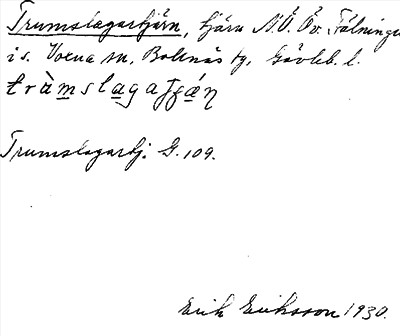 Trumslagartjärn, tjärn N.Ö. Öv. Fålninge
i s. Voxna sn, Bollnäs tg, Gävleb. l.
Trumslagartj. G. 109.
Erik Eriksson 1930.